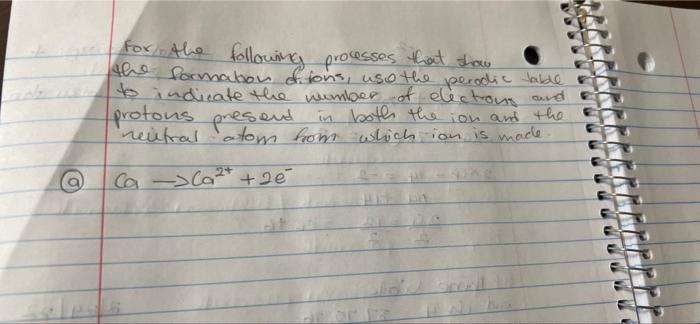 For the following processes that show
the formation of ions, use the perodic table
to indicate the number of electrons and
protons present in both the ion and the
neutral atom from which ion is made.
ⓐ Ca → Ca²⁺ + 2e⁻